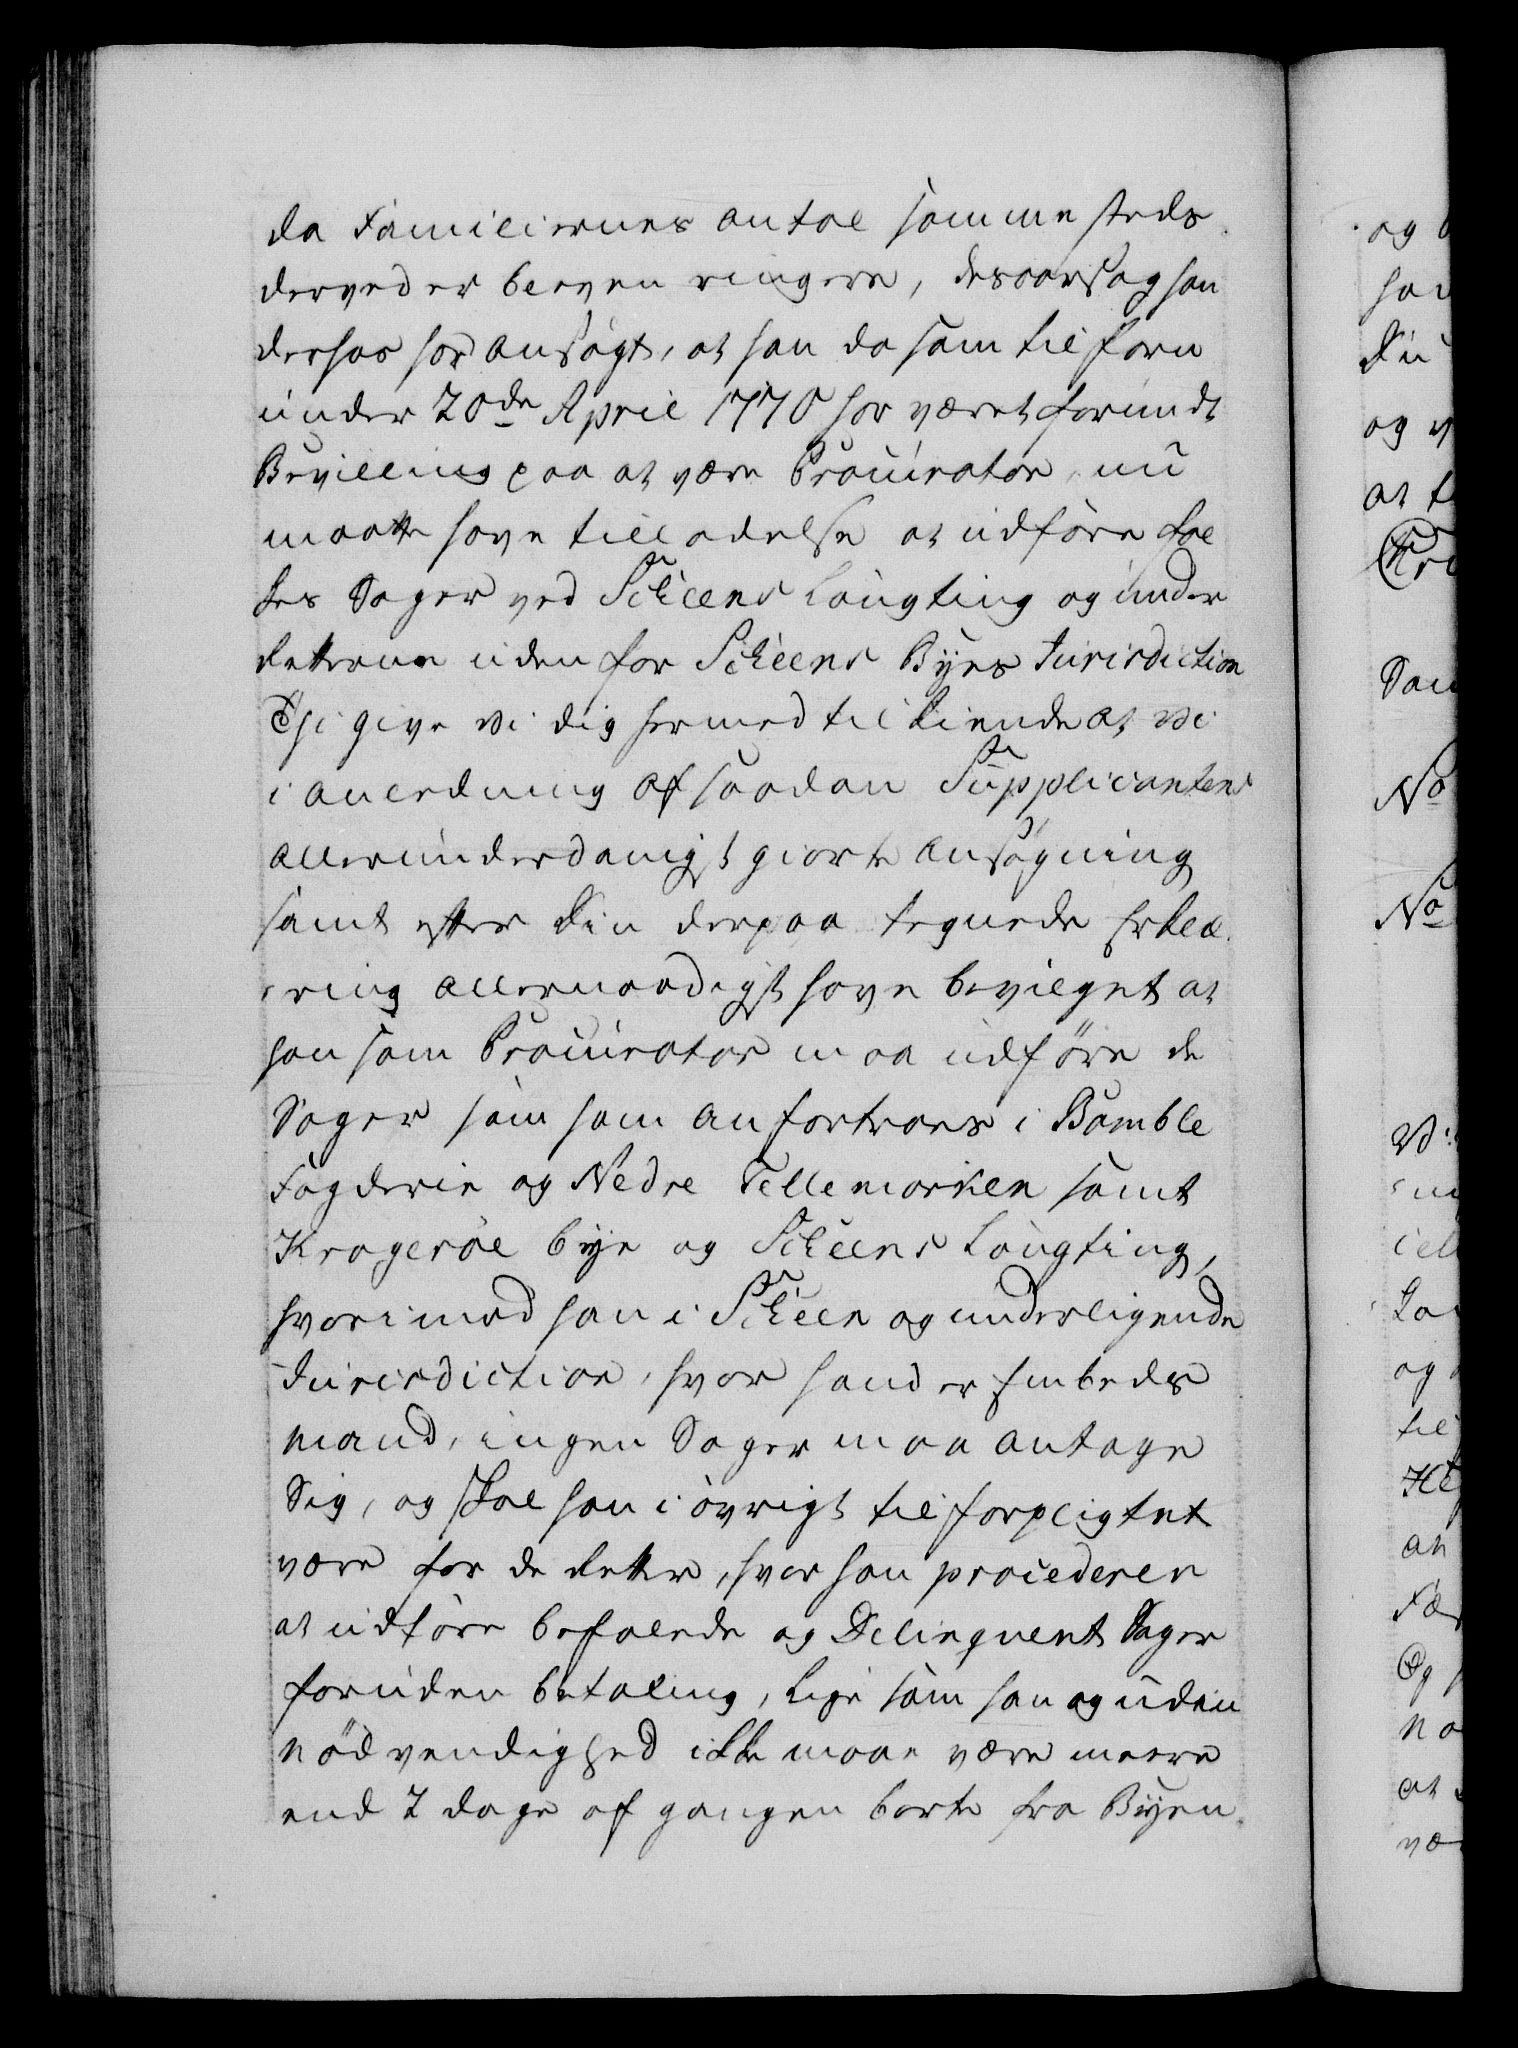 da Familiernes antal sammesteds
derved er bleven ringere, desaarsag han
derhos har ansøgt, at han da som tilforn
under 20de April 1770 har været forundt
Bevilling paa at være Procurator, nu
maatte have tilladelse at udføre fol
kes Sager ved Scheens Laugting og under
Retterne uden for Scheens Byes Jurisdiction
Thi give vi dig hermed tilkiende at vi
i anledning af saadan Supplicantens
allerunderdanigst giorte ansøgning
samt efter Din derpaa tegnede Erklæ
ring allernaadigst have bevilget at
han som Procurator maa udføre de
Sager som ham anfortroes i Bamble
Fogderie og Nedre Tellemarken samt
Kragerøe bye og Scheens Laugting,
hvorimod han i Scheen og underligende
Jurisdiction, hvor hand er Embeds
mand, ingen Sager maa antage
Sig, og skal han i øvrigt tilforpligtet
være for de Retter, hvor han procederer
at udføre befalede og Delinqvent Sager
foruden betaling, lige som han og uden
nødvendighed ikke maae være meere
end 2 dage af gangen borte fra Byen.
og
No
No
og
at